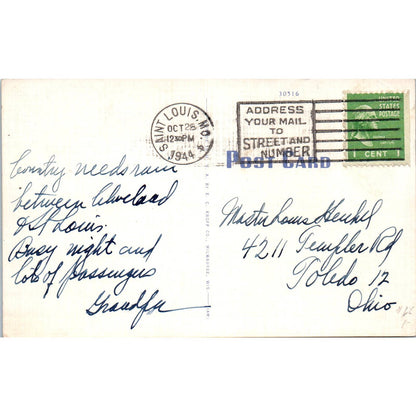 30516
SAINT LOUIS, MO.
OCT 28
12 30 PM
1944
ADDRESS
YOUR MAIL
TO
STREET AND
NUMBER
UNITED
STATES
POSTAGE
1 CENT 1
POST CARD
Country needs rain
between Cleveland
& St Louis.
Busy night and
lots of passengers
Grandpa
Master Louis Henkel
4211 Templer Rd
Toledo 12
Ohio